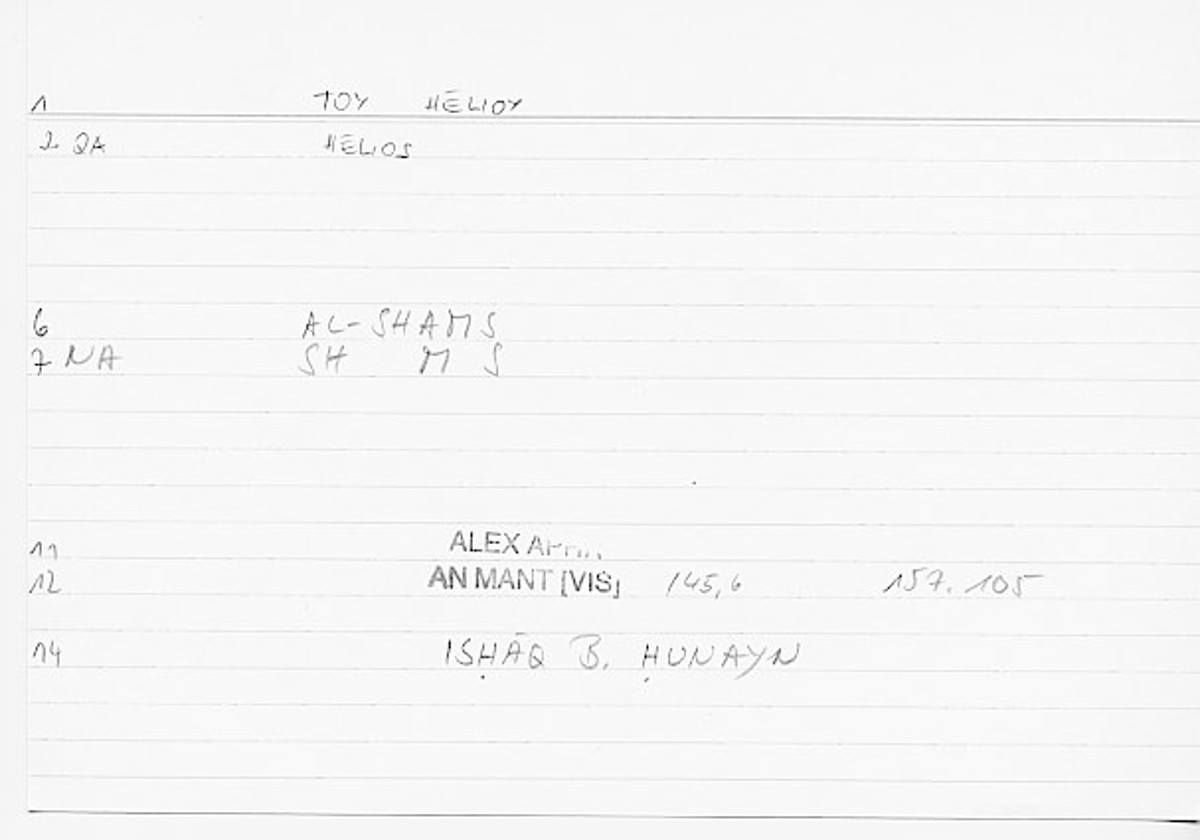 1 TOY HĒLIOY
2 QA HĒLIOS
6 AL-SHAMS
7 NA SH M S
11 ALEX
12 AN MANT [VIS] 145,6 157.105
14 ISḤĀQ B. ḤUNAYN